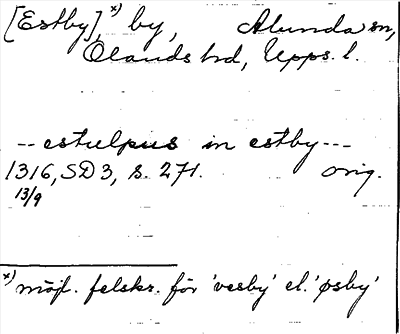 [Estby],ˣ⁾ by, Alunda sn,
Olands hd, Upps. l.
-- estulpus in estby ---
1316, SD 3, s. 271. orig.
13/9
ˣ⁾ möjl. felskr. för 'vesby' el. 'øsby'